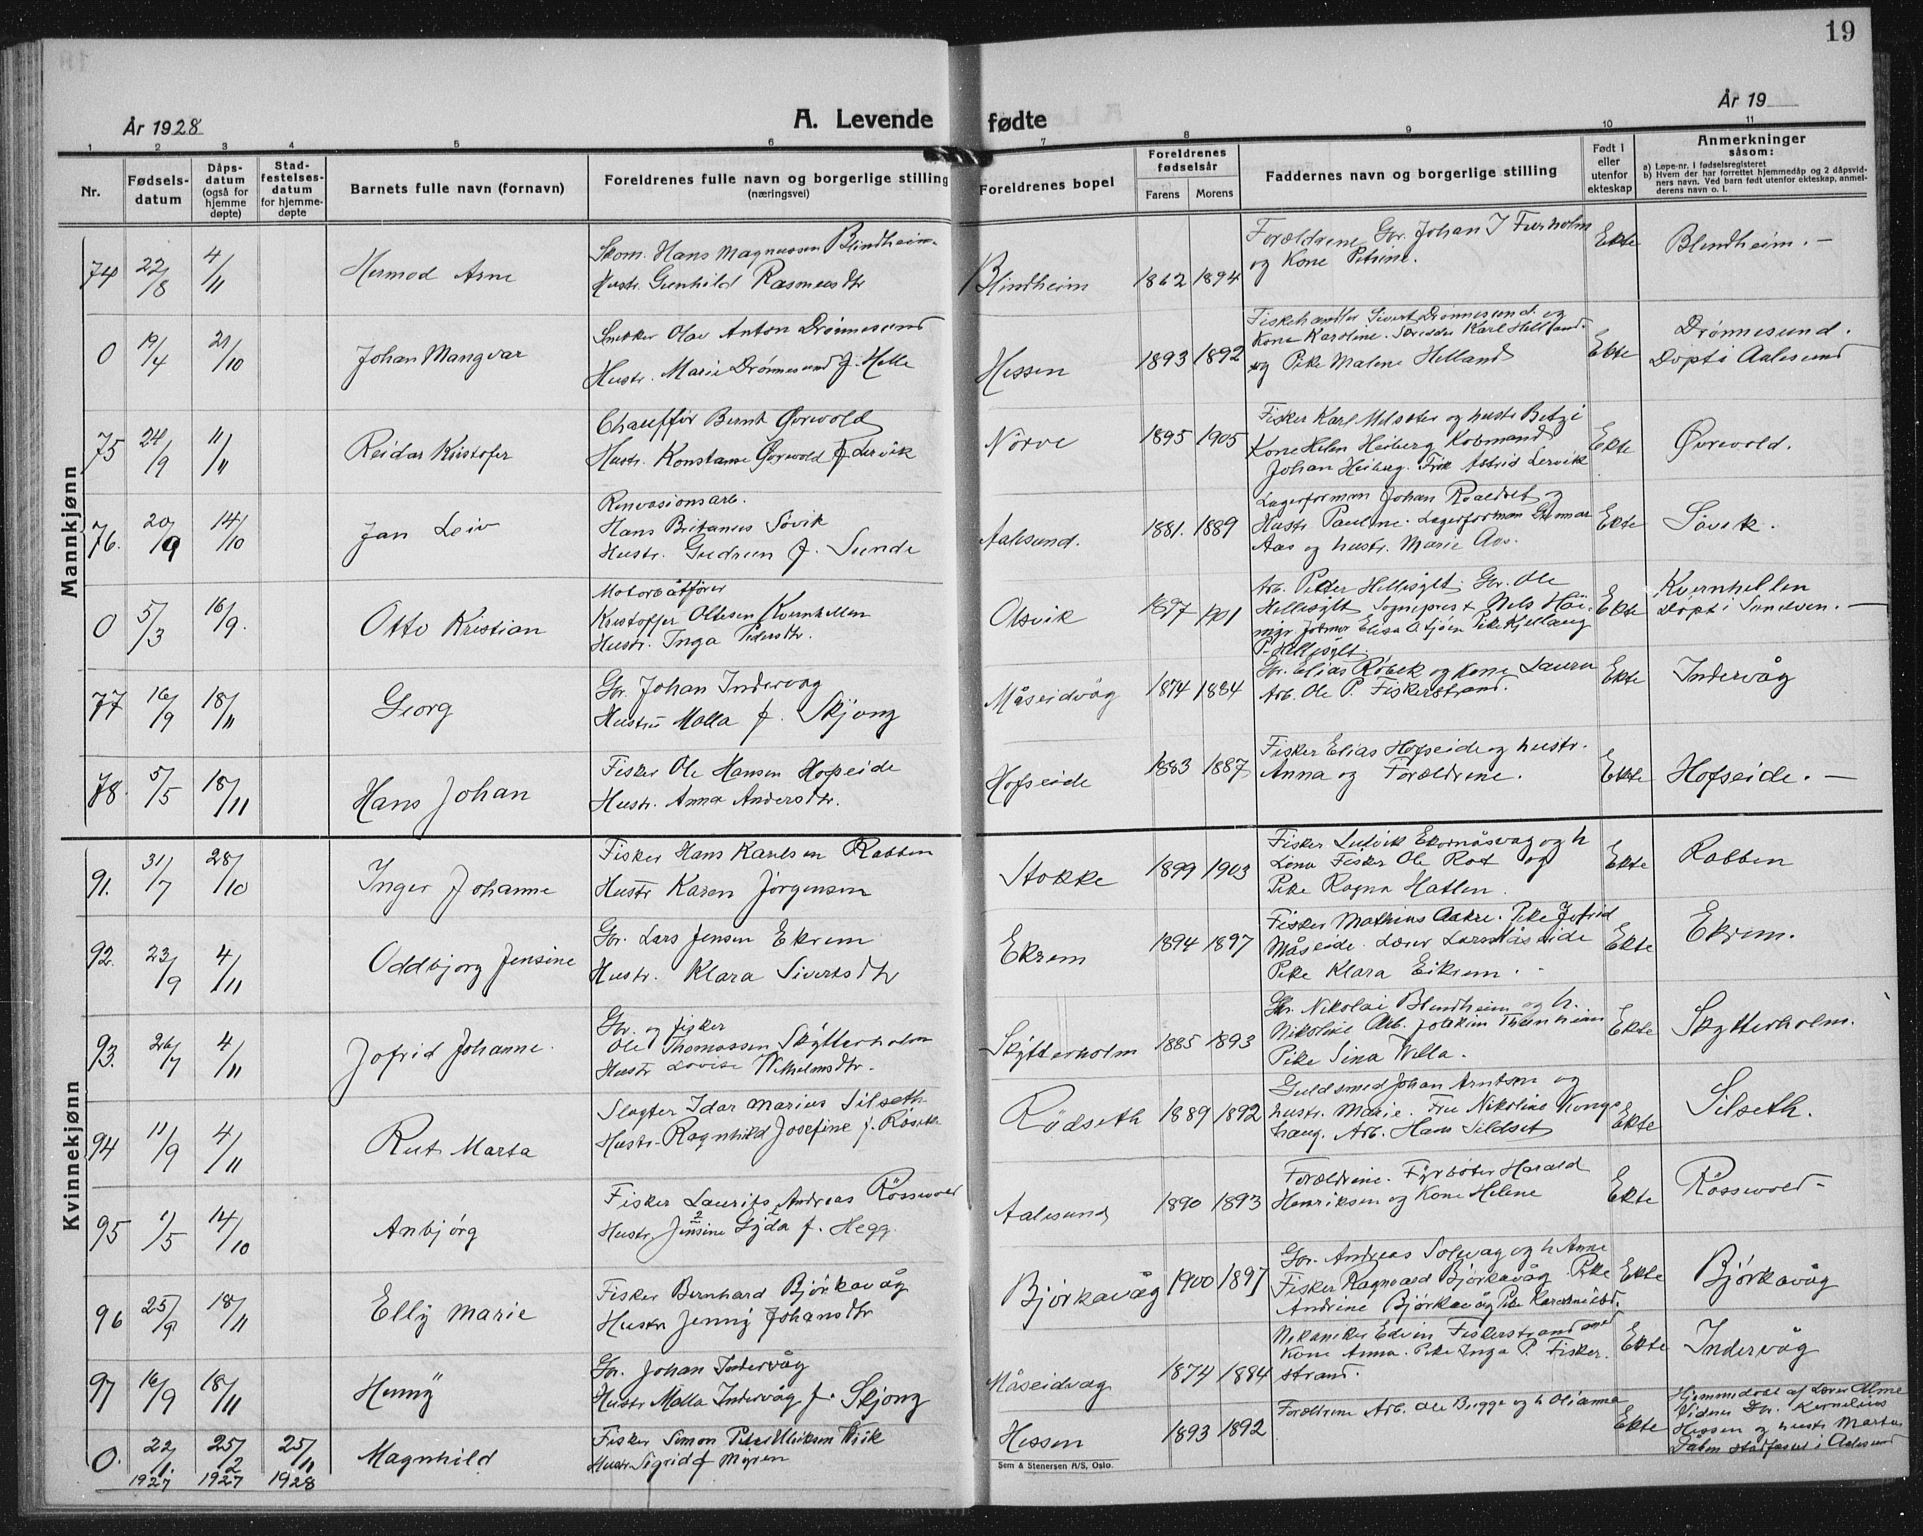 19
År 1928
A. Levende fødte
År 19
1 2 3 4 5 6 7 8 9 10 11
Nr.
Fødsels-datum
Dåps-datum (også for hjemme døpte)
Stad-festelses-datum for hjemme-døpte
Barnets fulle navn (fornavn)
Foreldrenes fulle navn og borgerlige stilling (næringsvei)
Foreldrenes bopel
Foreldrenes fødselsår
Farens Morens
Faddernes navn og borgerlige stilling
Født i eller utenfor ekteskap
Anmerkninger såsom:
a) Løpe-nr. i fødselsregisteret
b) Hvem der har forrettet hjemmedåp og 2 dåpsvid-
ners navn. Ved barn født utenfor ekteskap, anmel-
derens navn o. l.
Mannkjønn
74 22/8 4/11 Hermod Arne
Skom. Hans Magnussen Blindheim
Hustr. Gunhild Rasmusdtr
Blindheim 1862 1894
Forældrene Gr. Johan J Furholm
og Kone Petrine.
Ekte Blindheim. –
0 19/4 21/10 Johan Mangvar
Snekker Olav Anton Drønnesund
Hustr. Marie Drønnesund f. Helle
Hessen 1893 1892
Fiskehandler Sivert Drønnesund og
Kone Karoline. Skredder Karl Helland
og Pike Malene Helland
Ekte Drønnesund.
Døpt i Aalesund
75 24/9 11/11 Reidar Kristofer
Chauffør Bernt Øvrevold
Hustr. Konstanse Øvrevold f Lervik
Nørve 1895 1905
Fisker Karl Melseter og hustr Betzi
Kone Helen Heiberg Kobmand
Johan Heiberg. Frk Astrid Lervik
Ekte Øvrevold.
76. 20/9 14/10 Jan Leiv
Renovasionsarb.
Hans Søvik
Hustr. Gudrun f. Sunde
Aalesund. 1881. 1889
Lagerforman Johan Roaldset og
Hustr Pauline. Lagerforman Gunnar
Aas og hustr. Marie Aas.
Ekte Søvik.
0 5/3 16/9. Otto Kristian
Motorbåtfører
Kristoffer Ottesen Kvernhellen
Hustr. Inga Pedersdtr.
Olsvik 1897 1901
Arb. Petter Hellesylt. Gr. Ole
Hellesylt Sogneprest Nels
Elisa Pike
P. Hellesylt.
Ekte Kvernhellen
Døpt i Sunelven. –
77 16/9 18/11 Georg
Gr. Johan Indervåg
Hustru Malla f. Skjong
Måseidvåg 1874 1884
Gr. Elias Røbek og Kone Laura
Arb. Ole P. Fiskerstrand.
Ekte Indervåg
78. 5/5 18/11 Hans Johan
Fisker Ole Hansen Hofseide
Hustr. Anna Andersdtr.
Hofseide 1883 1887
Fisker Elias Hofseide og hustr.
Anna og Forældrene.
Ekte Hofseide. –
Kvinnekjønn
91. 31/7 28/10 Inger Johanne
Fisker Hans Karlsen Rabben
Hustr Karen Jørgensen
Stokke 1899 1903
Fisker Ludvik Ekornåsvag og h
Lena Fisker Ole Rot og
Pike Ragna Hatlen.
Ekte Rabben
92. 23/9 4/11 Oddbjorg Jensine
Gr. Lars Jensen Ekrem
Hustr. Klara Sivertsdtr
Ekrem 1894 1897
Fisker Mathias Aakre. Pike Jofrid
Måseide. Lærer Lars Måseide
Pike Klara Eikrem.
Ekte Ekrem.
93. 26/7 4/11 Jofrid Johanne.
Gr. og fisker
Ole Thomassen Skytterholm
Hustr Lovise Vilhelmsdtr.
Skytterholm 1885 1893
Gr. Nikolai Blindheim og h.
Nikoline Arb. Joakim
Pike Sina Villa.
Ekte Skytterholm.
94 11/9 4/11 Rut Marta
Slagter Idar Marius Silseth
Hustr. Ragnhild Josefine f. Røseth
Rødseth 1889 1892
Guldsmed Johan Arntsen og
hustr. Marie. Fru Nikoline Kongs
haug. Arb. Hans Sildset
Ekte Silseth.
95 11/5 14/10 Anbjørg
Fisker Laurits Andreas Røssevold
Hustr. Jensine Gyda f. Hegg
Aalesund 1890 1893
Forældrene. Fyrbøter Harald
Henriksen og Kone Helene
Ekte Røssevold –
96 25/9 18/11 Elly Marie
Fisker Bernhard Bjørkavåg
Hustr Jenny Johansdtr
Bjørkavåg 1900 1897
Gr. Andreas Solevag og h Anne
Fisker Ragnvald Bjørkavåg. Pike
Andrine Bjørkavåg Pike
Ekte Bjørkavåg
97 16/9 18/11 Henny
Gr. Johan Indervåg
Hustr Malla Indervåg f. Skjong
Måseidvag 1874 1884
Mekaniker Edvin Fiskerstrand med
Kone Anna. Pike Inga P. Fisker
strand.
Ekte Indervåg
0. 22/1. 1927 25/2 1927 25/11 1928 Magnhild
Fisker Simon Peter Ulriksen Vik
Hustr. Sigrid f Myren
Hessen 1893 1892
Forældrene Arb. Ole Bugge og h Olianna
Ekte Hjemmedøbt af Lærer Alme
Vidner Gr. Kornelius
Hessen og hustr Martha
Dåben stadfæstet i Aalesund
Sem & Stenersen A/S, Oslo.